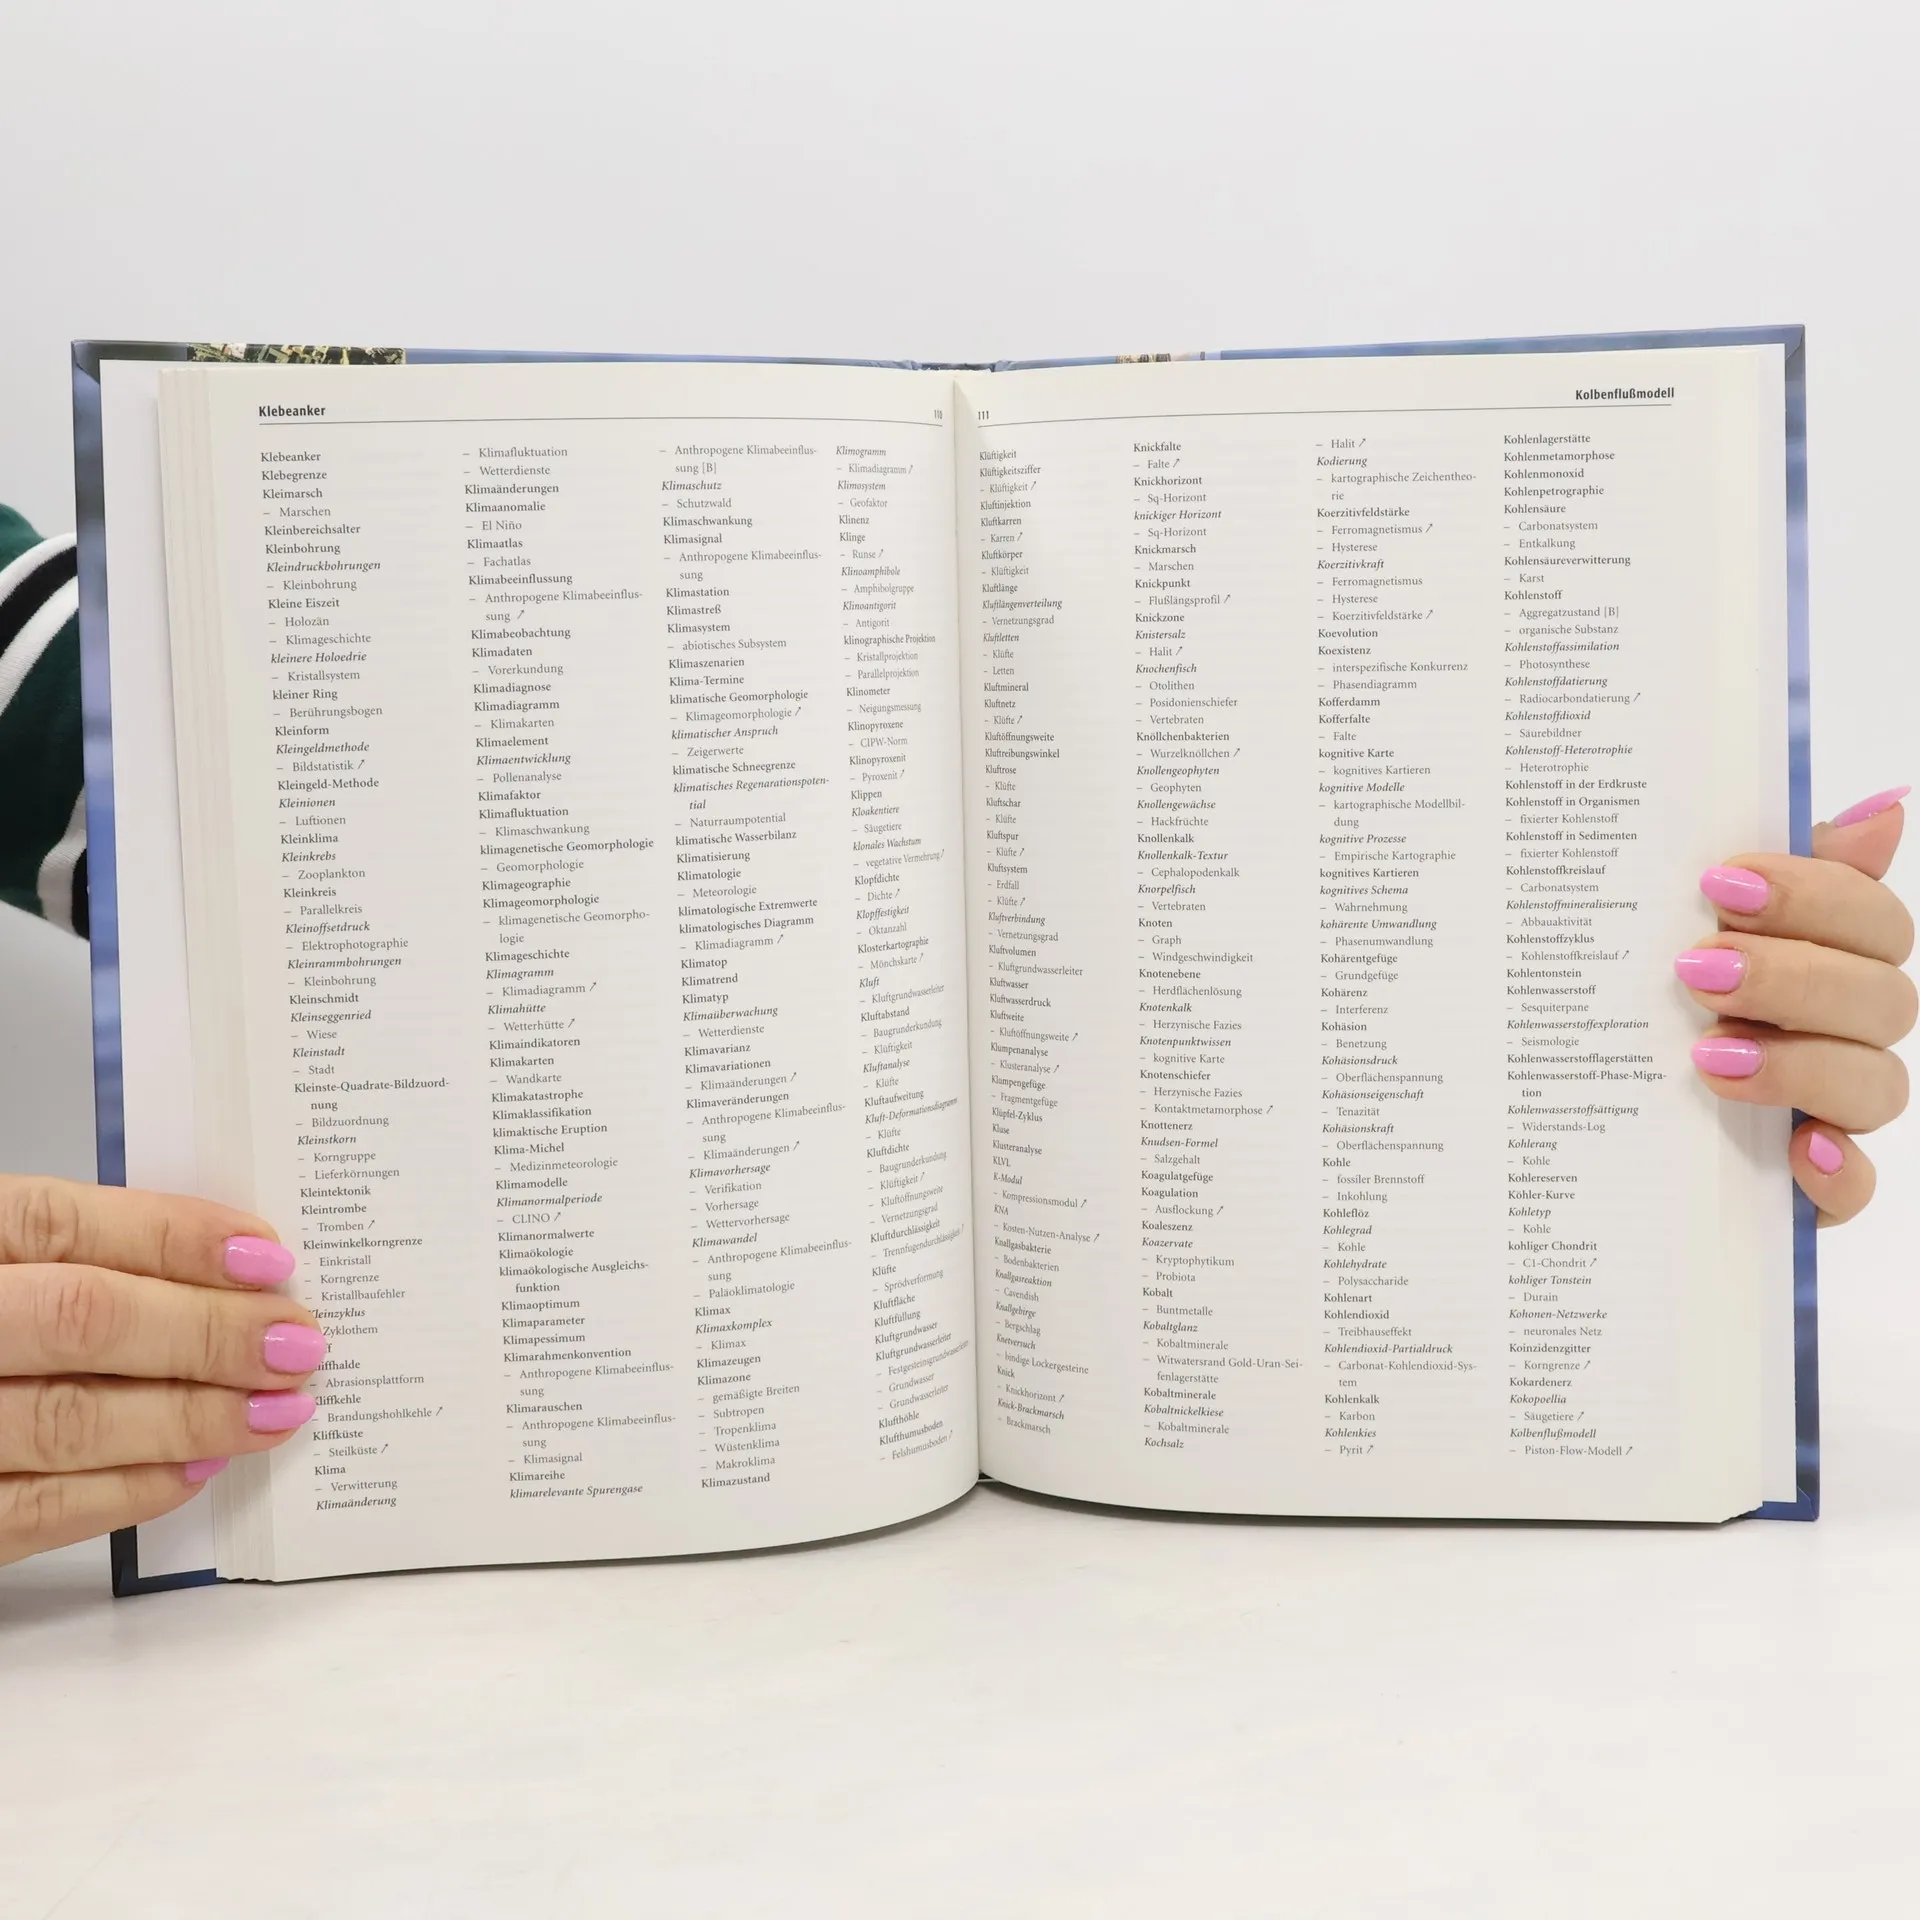 Klebeanker
110
Klebeanker
Klebegrenze
Kleimarsch
– Marschen
Kleinbereichsalter
Kleinbohrung
Kleindruckbohrungen
– Kleinbohrung
Kleine Eiszeit
– Holozän
– Klimageschichte
kleinere Holoedrie
– Kristallsystem
kleiner Ring
– Berührungsbogen
Kleinform
Kleingeldmethode
– Bildstatistik ↗
Kleingeld-Methode
Kleinionen
– Luftionen
Kleinklima
Kleinkrebs
– Zooplankton
Kleinkreis
– Parallelkreis
Kleinoffsetdruck
– Elektrophotographie
Kleinrammbohrungen
– Kleinbohrung
Kleinschmidt
Kleinseggenried
– Wiese
Kleinstadt
– Stadt
Kleinste-Quadrate-Bildzuord-
nung
– Bildzuordnung
Kleinstkorn
– Korngruppe
– Lieferkörnungen
Kleintektonik
Kleintrombe
– Tromben ↗
Kleinwinkelkorngrenze
– Einkristall
– Korngrenze
– Kristallbaufehler
Kleinzyklus
Zyklothem
ff
liffhalde
– Abrasionsplattform
Kliffkehle
– Brandungshohlkehle ↗
Kliffküste
– Steilküste ↗
Klima
– Verwitterung
Klimaänderung
– Klimafluktuation
– Wetterdienste
Klimaänderungen
Klimaanomalie
– El Niño
Klimaatlas
– Fachatlas
Klimabeeinflussung
– Anthropogene Klimabeeinflus-
sung ↗
Klimabeobachtung
Klimadaten
– Vorerkundung
Klimadiagnose
Klimadiagramm
– Klimakarten
Klimaelement
Klimaentwicklung
– Pollenanalyse
Klimafaktor
Klimafluktuation
– Klimaschwankung
klimagenetische Geomorphologie
– Geomorphologie
Klimageographie
Klimageomorphologie
– klimagenetische Geomorpho-
logie
Klimageschichte
Klimagramm
– Klimadiagramm ↗
Klimahütte
– Wetterhütte ↗
Klimaindikatoren
Klimakarten
– Wandkarte
Klimakatastrophe
Klimaklassifikation
klimaktische Eruption
Klima-Michel
– Medizinmeteorologie
Klimamodelle
Klimanormalperiode
– CLINO ↗
Klimanormalwerte
Klimaökologie
klimaökologische Ausgleichs-
funktion
Klimaoptimum
Klimaparameter
Klimapessimum
Klimarahmenkonvention
– Anthropogene Klimabeeinflus-
sung
Klimarauschen
– Anthropogene Klimabeeinflus-
sung
– Klimasignal
Klimareihe
klimarelevante Spurengase
– Anthropogene Klimabeeinflus-
sung [B]
Klimaschutz
– Schutzwald
Klimaschwankung
Klimasignal
– Anthropogene Klimabeeinflus-
sung
Klimastation
Klimastreß
Klimasystem
– abiotisches Subsystem
Klimaszenarien
Klima-Termine
klimatische Geomorphologie
– Klimageomorphologie ↗
klimatischer Anspruch
– Zeigerwerte
klimatische Schneegrenze
klimatisches Regenarationspoten-
tial
– Naturraumpotential
klimatische Wasserbilanz
Klimatisierung
Klimatologie
– Meteorologie
klimatologische Extremwerte
klimatologisches Diagramm
– Klimadiagramm ↗
Klimatop
Klimatrend
Klimatyp
Klimaüberwachung
– Wetterdienste
Klimavarianz
Klimavariationen
– Klimaänderungen ↗
Klimaveränderungen
– Anthropogene Klimabeeinflus-
sung
– Klimaänderungen ↗
Klimavorhersage
– Verifikation
– Vorhersage
– Wettervorhersage
Klimawandel
– Anthropogene Klimabeeinflus-
sung
– Paläoklimatologie
Klimax
Klimaxkomplex
– Klimax
Klimazeugen
Klimazone
– gemäßigte Breiten
– Subtropen
– Tropenklima
– Wüstenklima
– Makroklima
Klimazustand
Klimogramm
– Klimadiagramm ↗
Klimosystem
– Geofaktor
Klinenz
Klinge
– Runse ↗
Klinoamphibole
– Amphibolgruppe
Klinoantigorit
– Antigorit
klinographische Projektion
– Kristallprojektion
– Parallelprojektion
Klinometer
– Neigungsmessung
Klinopyroxene
– CIPW-Norm
Klinopyroxenit
– Pyroxenit ↗
Klippen
Kloakentiere
– Säugetiere
klonales Wachstum
– vegetative Vermehrung ↗
Klopfdichte
– Dichte ↗
Klopffestigkeit
– Oktanzahl
Klosterkartographie
– Mönchskarte ↗
Kluft
– Kluftgrundwasserleiter
Kluftabstand
– Baugrunderkundung
– Klüftigkeit
Kluftanalyse
– Klüfte
Kluftaufweitung
Kluft-Deformationsdiagramm
– Klüfte
Kluftdichte
– Baugrunderkundung
– Klüftigkeit ↗
– Kluftöffnungsweite
– Vernetzungsgrad
Kluftdurchlässigkeit
– Trennfugendurchlässigkeit ↗
Klüfte
– Sprödverformung
Kluftfläche
Kluftfüllung
Kluftgrundwasser
Kluftgrundwasserleiter
– Festgesteinsgrundwasserleiter
– Grundwasser
– Grundwasserleiter
Klufthöhle
Klufthumusboden
– Felshumusboden ↗
111
Kolbenflußmodell
Klüftigkeit
Klüftigkeitsziffer
– Klüftigkeit ↗
Kluftinjektion
Kluftkarren
– Karren ↗
Kluftkörper
– Klüftigkeit
Kluftlänge
Kluftlängenverteilung
– Vernetzungsgrad
Kluftletten
– Klüfte
– Letten
Kluftmineral
Kluftnetz
– Klüfte ↗
Kluftöffnungsweite
Kluftreibungswinkel
Kluftrose
– Klüfte
Kluftschar
– Klüfte
Kluftspur
– Klüfte ↗
Kluftsystem
– Erdfall
– Klüfte ↗
Kluftverbindung
– Vernetzungsgrad
Kluftvolumen
– Kluftgrundwasserleiter
Kluftwasser
Kluftwasserdruck
Kluftweite
– Kluftöffnungsweite ↗
Klumpenanalyse
– Klusteranalyse ↗
Klumpengefüge
– Fragmentgefüge
Klüpfel-Zyklus
Kluse
Klusteranalyse
KLVL
K-Modul
– Kompressionsmodul ↗
KNA
– Kosten-Nutzen-Analyse ↗
Knallgasbakterie
– Bodenbakterien
Knallgasreaktion
– Cavendish
Knallgebirge
– Bergschlag
Knetversuch
– bindige Lockergesteine
Knick
– Knickhorizont ↗
Knick-Brackmarsch
– Brackmarsch
Knickfalte
– Falte ↗
Knickhorizont
– Sq-Horizont
knickiger Horizont
– Sq-Horizont
Knickmarsch
– Marschen
Knickpunkt
– Flußlängsprofil ↗
Knickzone
Knistersalz
– Halit ↗
Knochenfisch
– Otolithen
– Posidonienschiefer
– Vertebraten
Knöllchenbakterien
– Wurzelknöllchen ↗
Knollengeophyten
– Geophyten
Knollengewächse
– Hackfrüchte
Knollenkalk
Knollenkalk-Textur
– Cephalopodenkalk
Knorpelfisch
– Vertebraten
Knoten
– Graph
– Windgeschwindigkeit
Knotenebene
– Herdflächenlösung
Knotenkalk
– Herzynische Fazies
Knotenpunktwissen
– kognitive Karte
Knotenschiefer
– Herzynische Fazies
– Kontaktmetamorphose ↗
Knottenerz
Knudsen-Formel
– Salzgehalt
Koagulatgefüge
Koagulation
– Ausflockung ↗
Koaleszenz
Koazervate
– Kryptophytikum
– Probiota
Kobalt
– Buntmetalle
Kobaltglanz
– Kobaltminerale
– Witwatersrand Gold-Uran-Sei-
fenlagerstätte
Kobaltminerale
Kobaltnickelkiese
– Kobaltminerale
Kochsalz
– Halit ↗
Kodierung
– kartographische Zeichentheo-
rie
Koerzitivfeldstärke
– Ferromagnetismus ↗
– Hysterese
Koerzitivkraft
– Ferromagnetismus
– Hysterese
– Koerzitivfeldstärke ↗
Koevolution
Koexistenz
– interspezifische Konkurrenz
– Phasendiagramm
Kofferdamm
Kofferfalte
– Falte
kognitive Karte
– kognitives Kartieren
kognitive Modelle
– kartographische Modellbil-
dung
kognitive Prozesse
– Empirische Kartographie
kognitives Kartieren
kognitives Schema
– Wahrnehmung
kohärente Umwandlung
– Phasenumwandlung
Kohärentgefüge
– Grundgefüge
Kohärenz
– Interferenz
Kohäsion
– Benetzung
Kohäsionsdruck
– Oberflächenspannung
Kohäsionseigenschaft
– Tenazität
Kohäsionskraft
– Oberflächenspannung
Kohle
– fossiler Brennstoff
– Inkohlung
Kohleflöz
Kohlegrad
– Kohle
Kohlehydrate
– Polysaccharide
Kohlenart
Kohlendioxid
– Treibhauseffekt
Kohlendioxid-Partialdruck
– Carbonat-Kohlendioxid-Sys-
tem
Kohlenkalk
– Karbon
Kohlenkies
– Pyrit ↗
Kohlenlagerstätte
Kohlenmetamorphose
Kohlenmonoxid
Kohlenpetrographie
Kohlensäure
– Carbonatsystem
– Entkalkung
Kohlensäureverwitterung
– Karst
Kohlenstoff
– Aggregatzustand [B]
– organische Substanz
Kohlenstoffassimilation
– Photosynthese
Kohlenstoffdatierung
– Radiocarbondatierung ↗
Kohlenstoffdioxid
– Säurebildner
Kohlenstoff-Heterotrophie
– Heterotrophie
Kohlenstoff in der Erdkruste
Kohlenstoff in Organismen
– fixierter Kohlenstoff
Kohlenstoff in Sedimenten
– fixierter Kohlenstoff
Kohlenstoffkreislauf
– Carbonatsystem
Kohlenstoffmineralisierung
– Abbauaktivität
Kohlenstoffzyklus
– Kohlenstoffkreislauf ↗
Kohlentonstein
Kohlenwasserstoff
– Sesquiterpane
Kohlenwasserstoffexploration
– Seismologie
Kohlenwasserstofflagerstätten
Kohlenwasserstoff-Phase-Migra-
tion
Kohlenwasserstoffsättigung
– Widerstands-Log
Kohlerang
– Kohle
Kohlereserven
Köhler-Kurve
Kohletyp
– Kohle
kohliger Chondrit
– C1-Chondrit ↗
kohliger Tonstein
– Durain
Kohonen-Netzwerke
– neuronales Netz
Koinzidenzgitter
– Korngrenze ↗
Kokardenerz
Kokopoellia
– Säugetiere ↗
Kolbenflußmodell
– Piston-Flow-Modell ↗